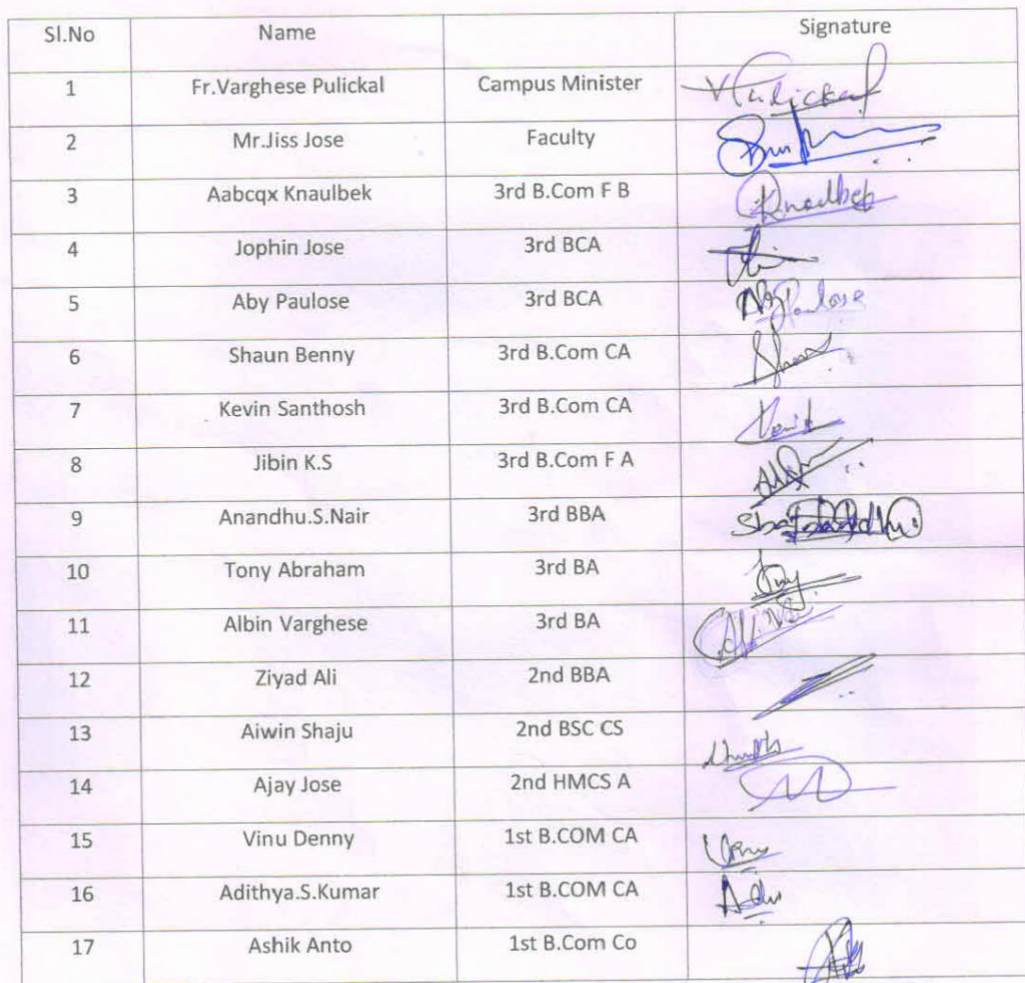 Sl.No Name Signature
1 Fr.Varghese Pulickal Campus Minister VPulickal
2 Mr.Jiss Jose Faculty
3 Aabcqx Knaulbek 3rd B.Com F B Knaulbek
4 Jophin Jose 3rd BCA
5 Aby Paulose 3rd BCA Aby Paulose
6 Shaun Benny 3rd B.Com CA
7 Kevin Santhosh 3rd B.Com CA
8 Jibin K.S 3rd B.Com F A
9 Anandhu.S.Nair 3rd BBA
10 Tony Abraham 3rd BA Tony
11 Albin Varghese 3rd BA
12 Ziyad Ali 2nd BBA
13 Aiwin Shaju 2nd BSC CS
14 Ajay Jose 2nd HMCS A
15 Vinu Denny 1st B.COM CA
16 Adithya.S.Kumar 1st B.COM CA
17 Ashik Anto 1st B.Com Co